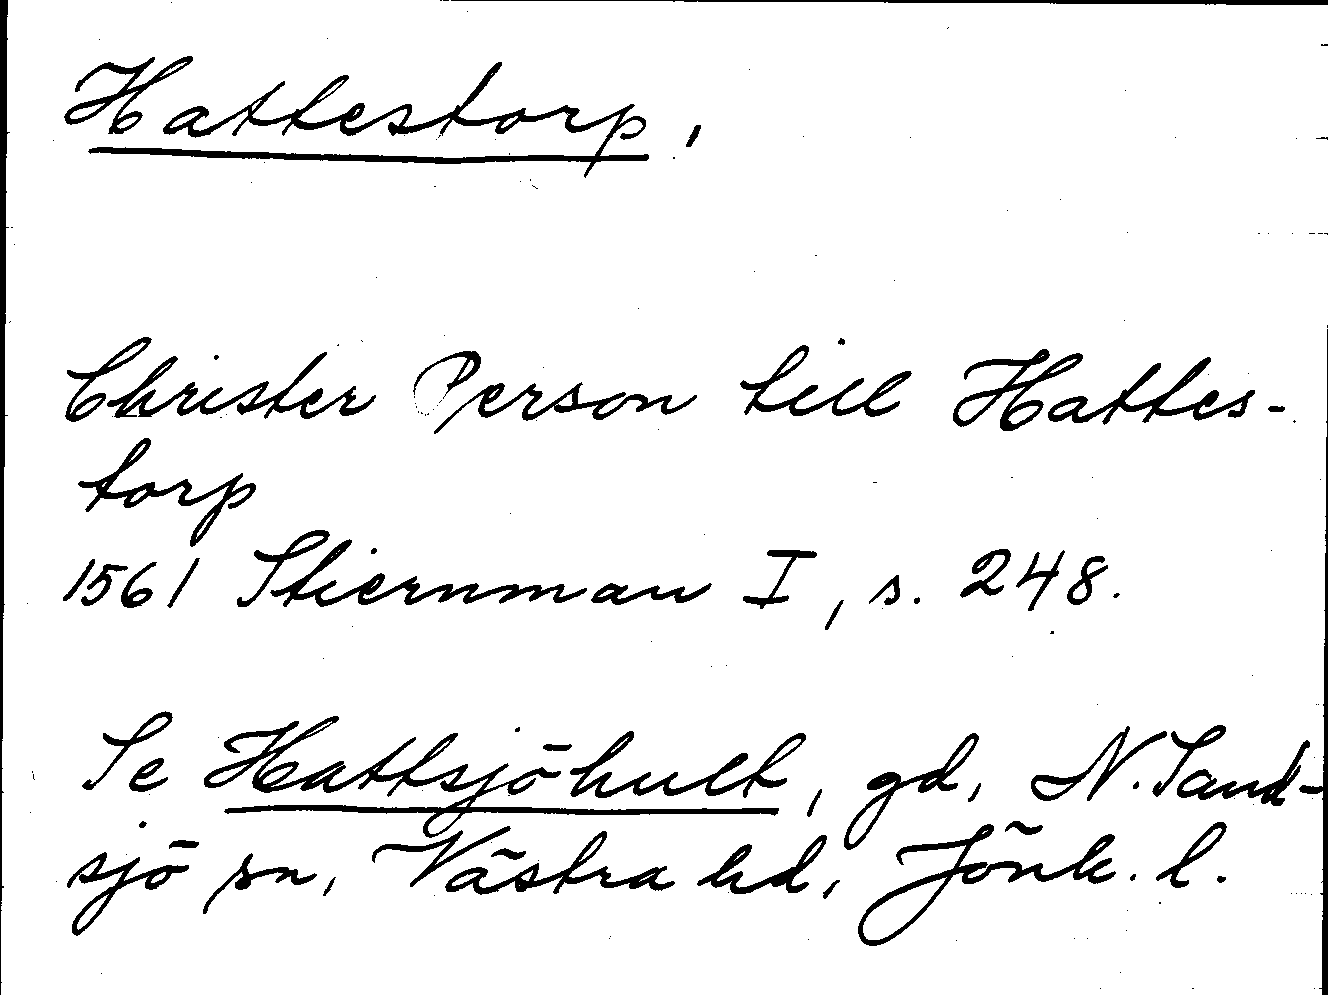 Hattestorp,
Christer Person till Hattes-
torp
1561 Stiernman I, s. 248.
Se Hattsjöhult, gd, N. Sand-
sjö sn, Västra hd, Jönk. l.